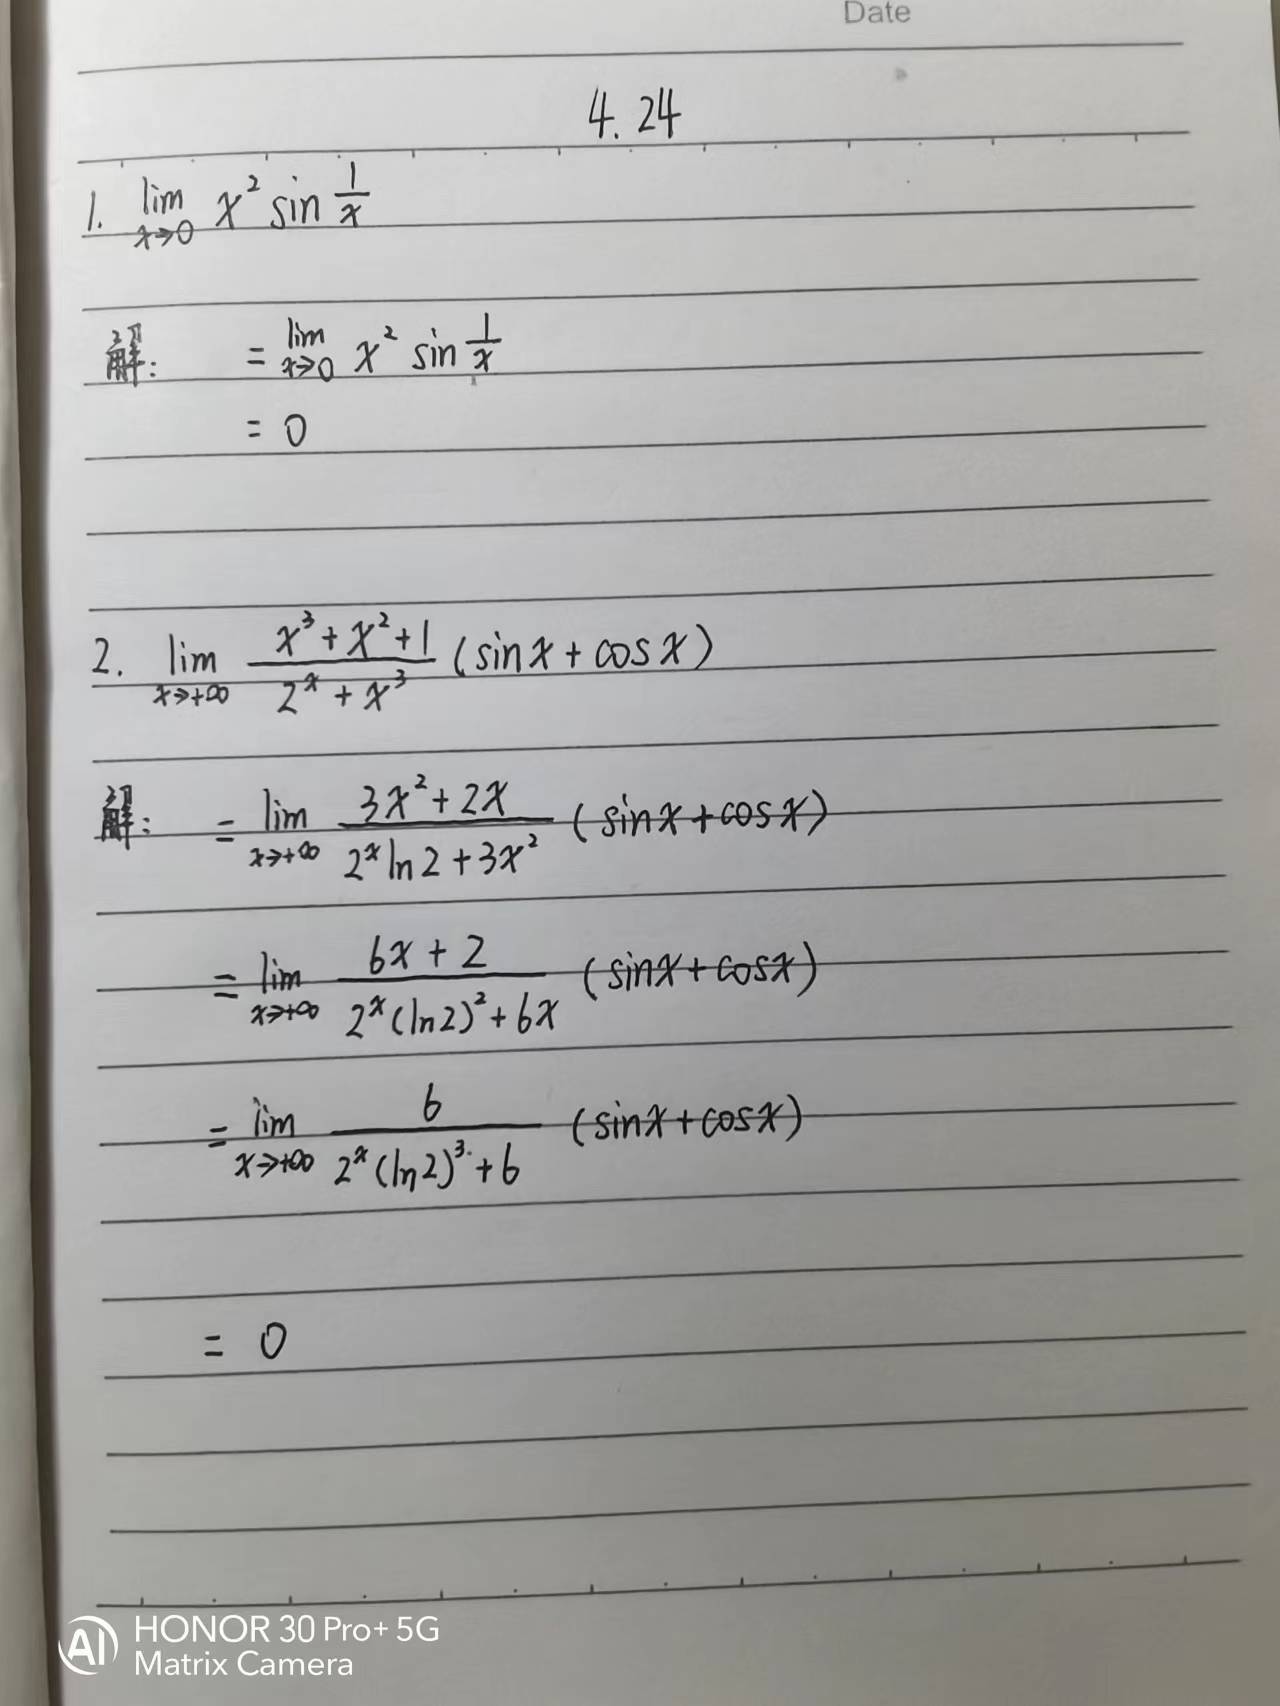 Date
4.24
1. lim x→0 x² sin 1/x
解: = lim x→0 x² sin 1/x
= 0
2. lim x→+∞ (x³+x²+1)/(2ˣ+x³) (sinx+cosx)
解: = lim x→+∞ (3x²+2x)/(2ˣln2+3x²) (sinx+cosx)
= lim x→+∞ (6x+2)/(2ˣ(ln2)²+6x) (sinx+cosx)
= lim x→+∞ 6/(2ˣ(ln2)³+6) (sinx+cosx)
= 0
AI HONOR 30 Pro+ 5G
Matrix Camera